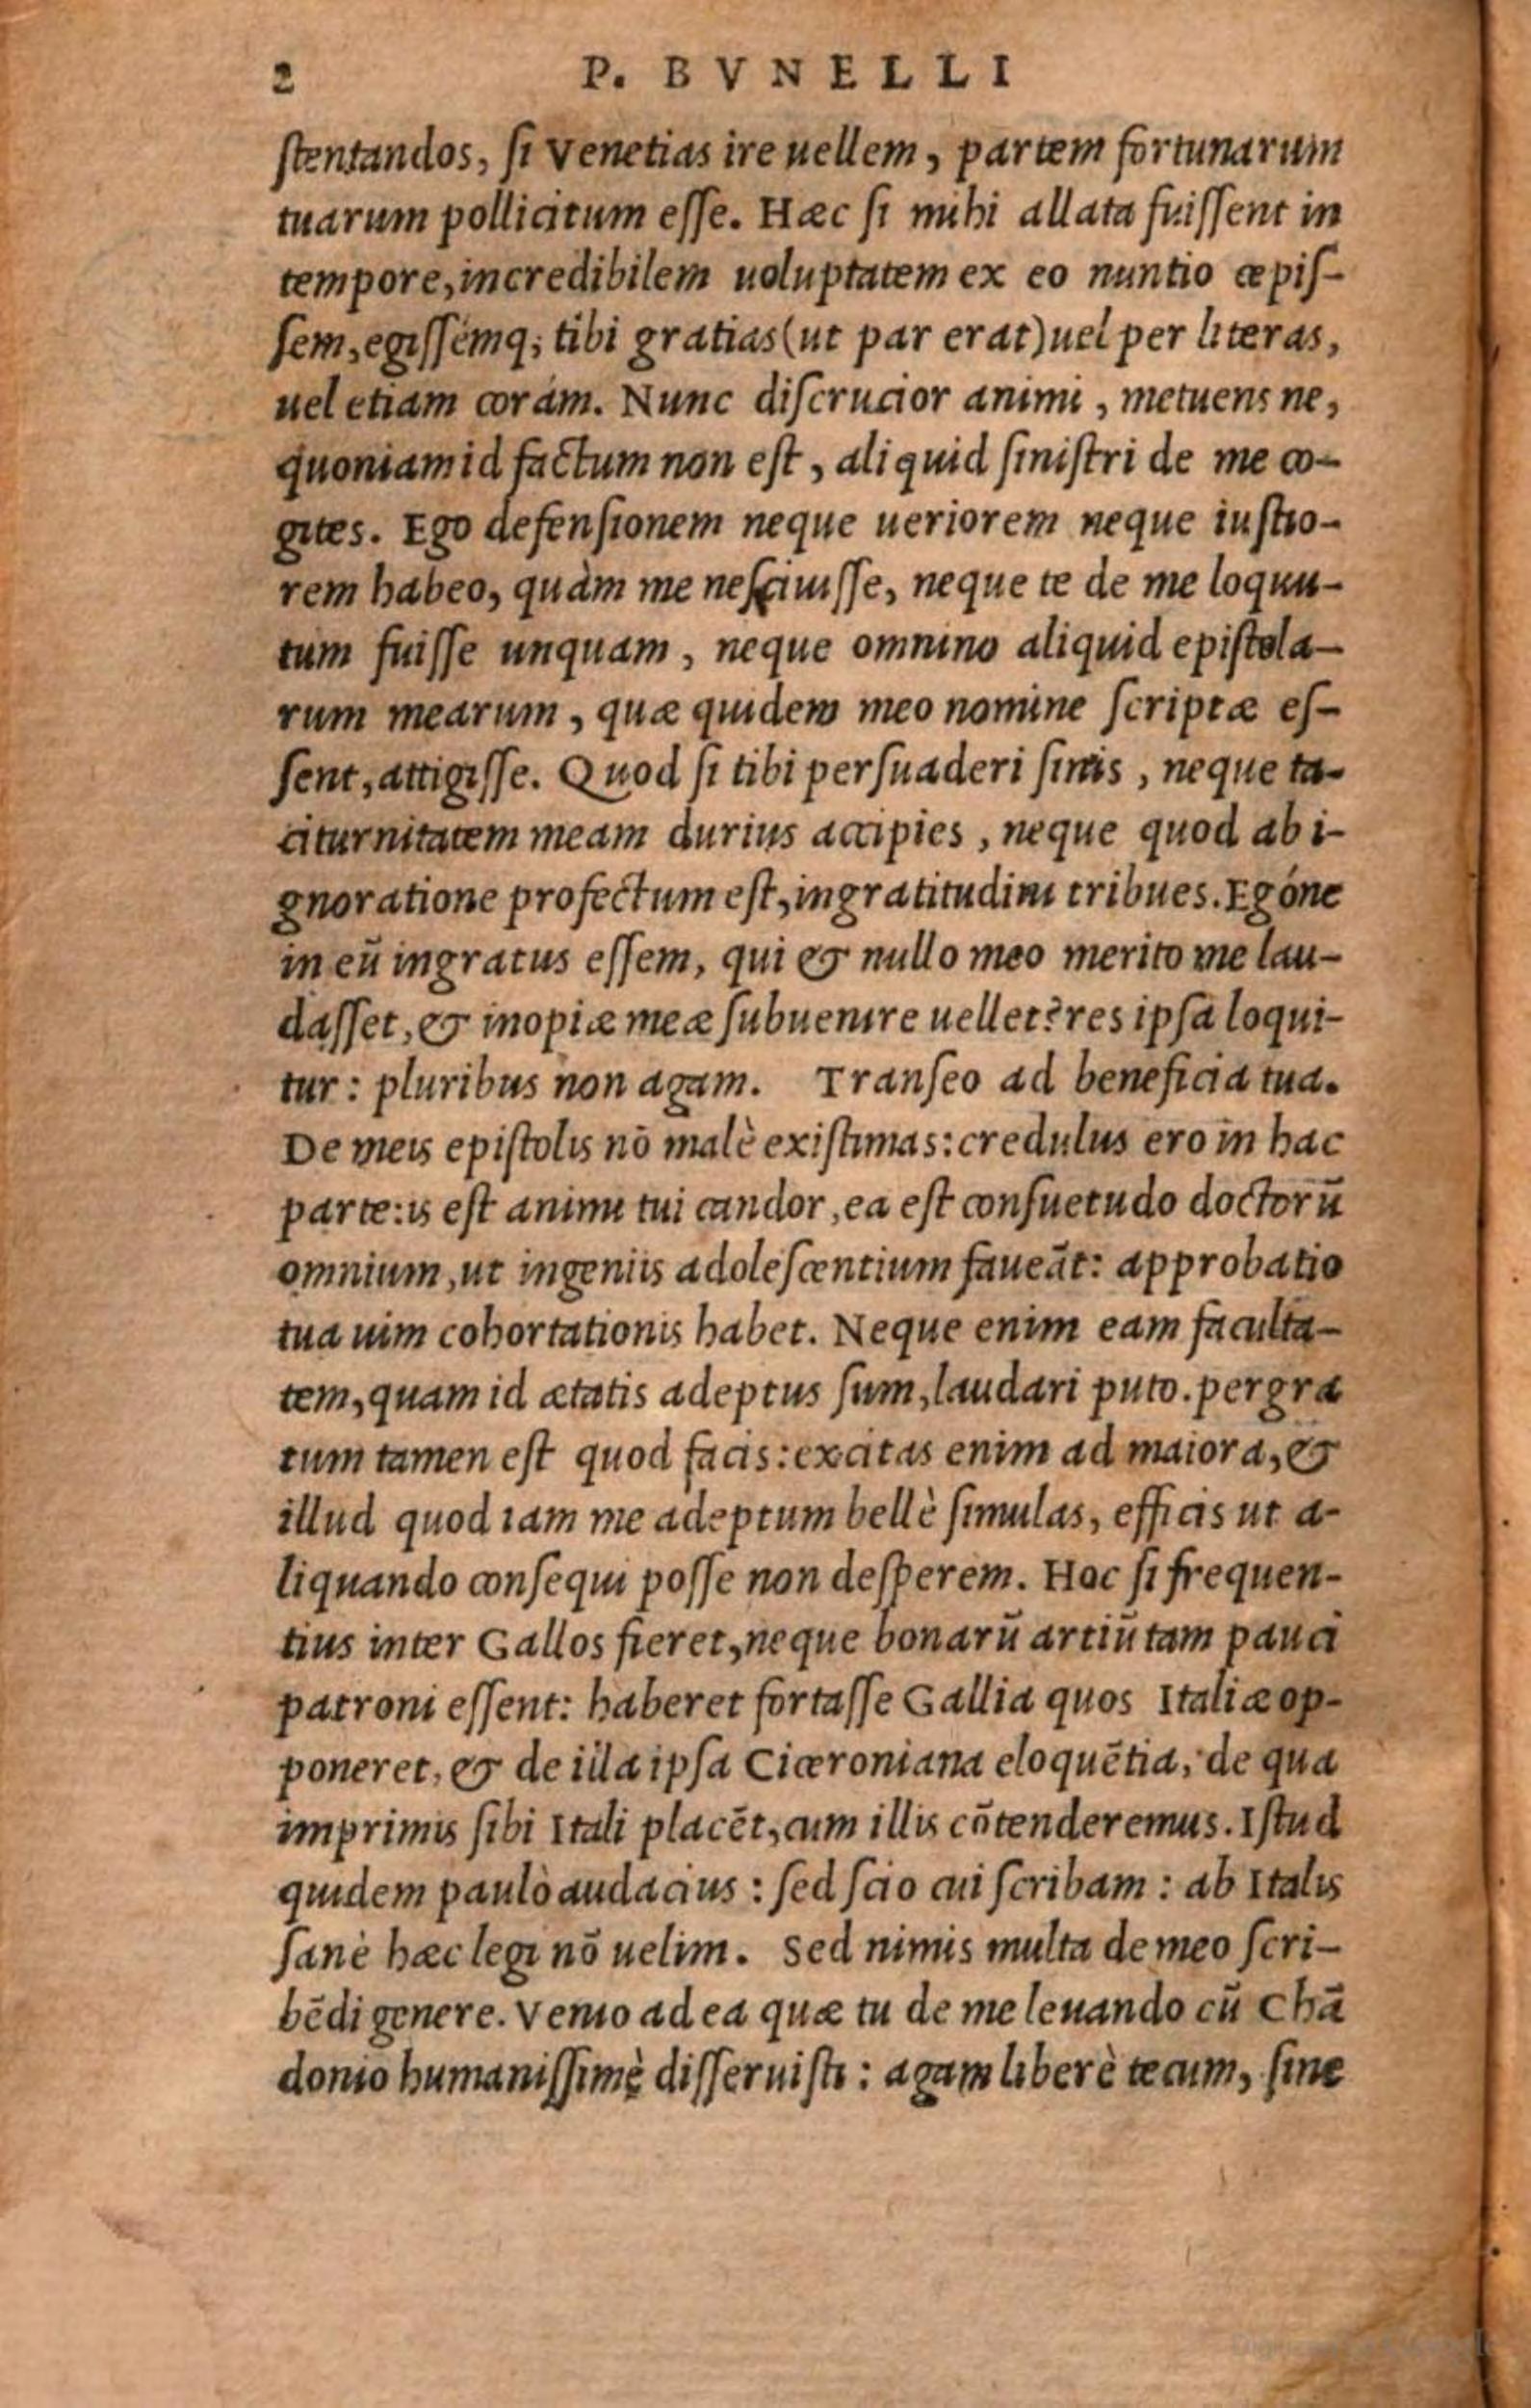 2 P. BVNELLI
ſtentandos, ſi Venetias ire uellem, partem fortunarum
tuarum pollicitum eſſe. Hæc ſi mihi allata fuiſſent in
tempore, incredibilem uoluptatem ex eo nuntio cepiſ-
ſem, egiſſémq; tibi gratias (ut par erat) uel per literas,
uel etiam coràm. Nunc diſcrucior animi, metuens ne,
quoniam id factum non eſt, aliquid ſiniſtri de me co-
gites. Ego defenſionem neque ueriorem neque iuſtio-
rem habeo, quàm me neſciuiſſe, neque te de me loquu-
tum fuiſſe unquam, neque omnino aliquid epiſtola-
rum mearum, quæ quidem meo nomine ſcriptæ eſ-
ſent, attigiſſe. Quod ſi tibi perſuaderi ſinis, neque ta-
citurnitatem meam durius accipies, neque quod ab i-
gnoratione profectum eſt, ingratitudini tribues. Egóne
in eū ingratus eſſem, qui & nullo meo merito me lau-
daſſet, & inopiæ meæ ſubuenire uellet? res ipſa loqui-
tur: pluribus non agam. Tranſeo ad beneficia tua.
De meis epiſtolis nō malè exiſtimas: credulus ero in hac
parte: is eſt animi tui candor, ea eſt conſuetudo doctorū
omnium, ut ingeniis adoleſcentium faueāt: approbatio
tua uim cohortationis habet. Neque enim eam faculta-
tem, quam id ætatis adeptus ſum, laudari puto. pergra
tum tamen eſt quod facis: excitas enim ad maiora, &
illud quod iam me adeptum bellè ſimulas, efficis ut a-
liquando conſequi poſſe non deſperem. Hoc ſi frequen-
tius inter Gallos fieret, neque bonarū artiū tam pauci
patroni eſſent: haberet fortaſſe Gallia quos Italiæ op-
poneret, & de illa ipſa Ciceroniana eloquētia, de qua
imprimis ſibi Itali placēt, cum illis cōtenderemus. Iſtud
quidem paulò audacius: ſed ſcio cui ſcribam: ab Italis
ſanè hæc legi nō uelim. Sed nimis multa de meo ſcri-
bēdi genere. Venio ad ea quæ tu de me leuando cū Chā
donio humaniſſimè diſſeruiſti: agam liberè tecum, ſine